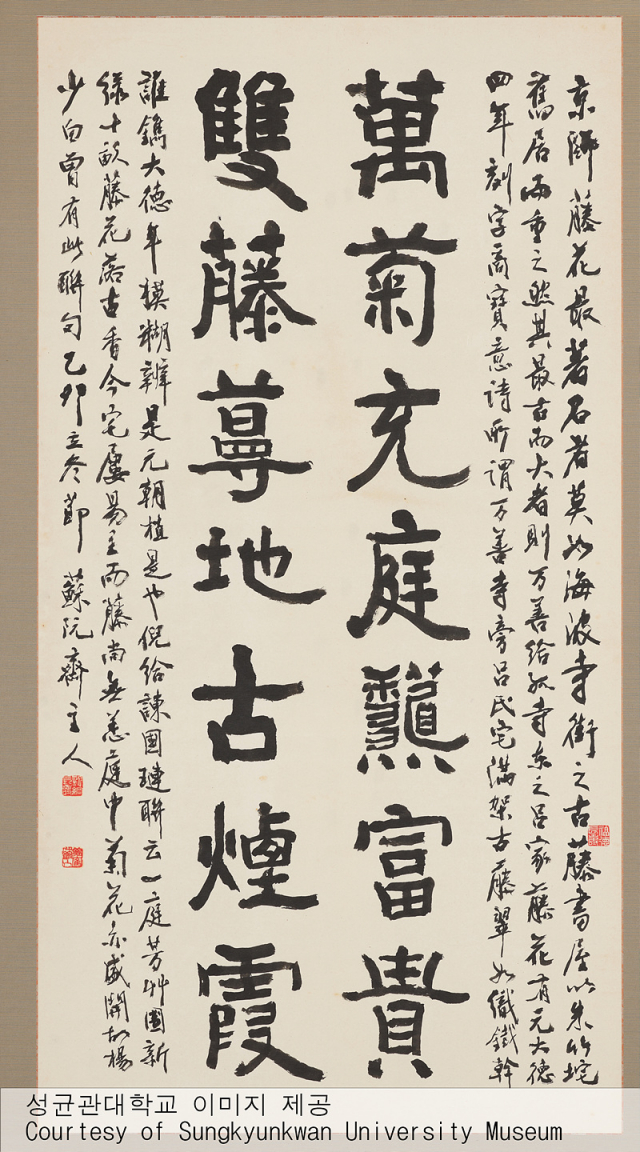 京師藤花最著名者莫如海波寺街之古藤書屋以朱竹垞
舊居而重之然其最古而大者則万善給孤寺東之呂家藤花有元大德
四年刻字商寶意詩所謂万善寺旁呂氏宅滿架古藤翠如織鐵幹
萬菊充庭觀富貴
雙藤蕚地古煙霞
誰鐫大德年模糊辨是元朝植是也倪給諫國璉聯云一庭芳艸圍新
綠十畝藤花落古香今宅屢易主而藤尚無恙庭中菊花亦盛開故楊
少白曾有此聯句乙卯立冬節 蘇阮齋主人
성균관대학교 이미지 제공
Courtesy of Sungkyunkwan University Museum